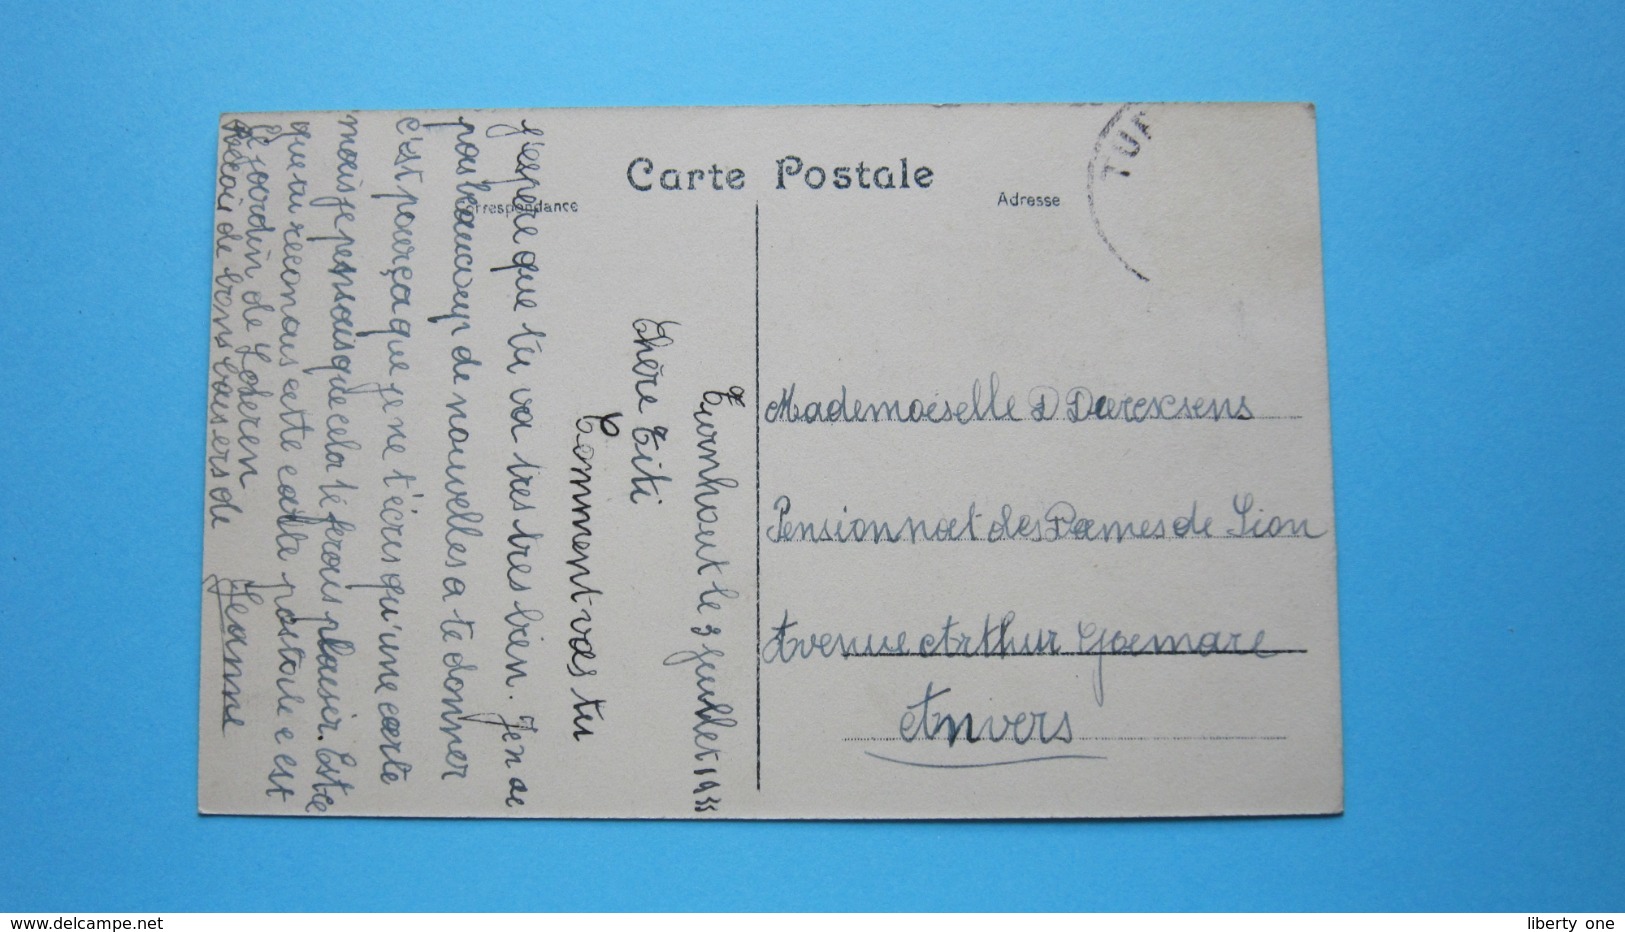 Carte Postale
Correspondance
Adresse
TUR
Turnhout le 3 juillet 1933
Chère Titi
Comment vas tu
j'espere que tu va tres tres bien. Jen ai
pas beaucoup de nouvelles a te donner
c'est pourça que je ne t'écris qu'une carte
mais je pensais que cela te ferais plaisir. Est ce
que tu reconais cette carte postale c est
le jardin de Lokeren
Recois de bons baisers de
Jeanne
Mademoiselle D Dierexsens
Pensionnat des Dames de Sion
Avenue Arthur Goemare
Anvers
www.delcampe.net
liberty one